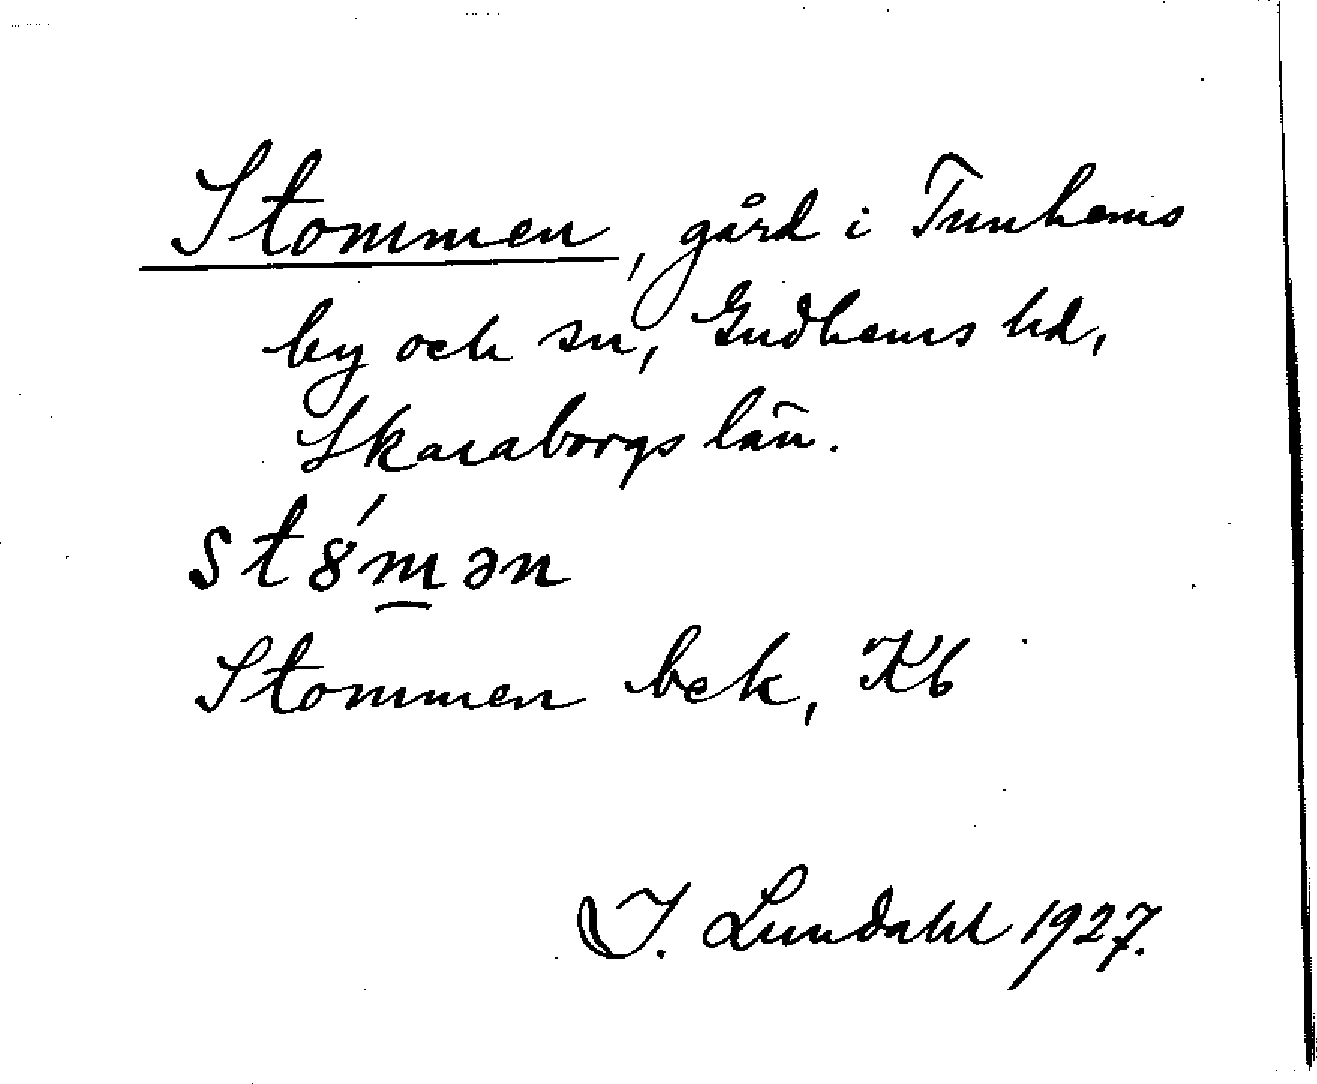 Stommen, gård i Tunhems
by och sn, Gudhems hd,
Skaraborgs län.
st8́m̲ən
Stommen bek, Kb
I. Lundahl 1927.